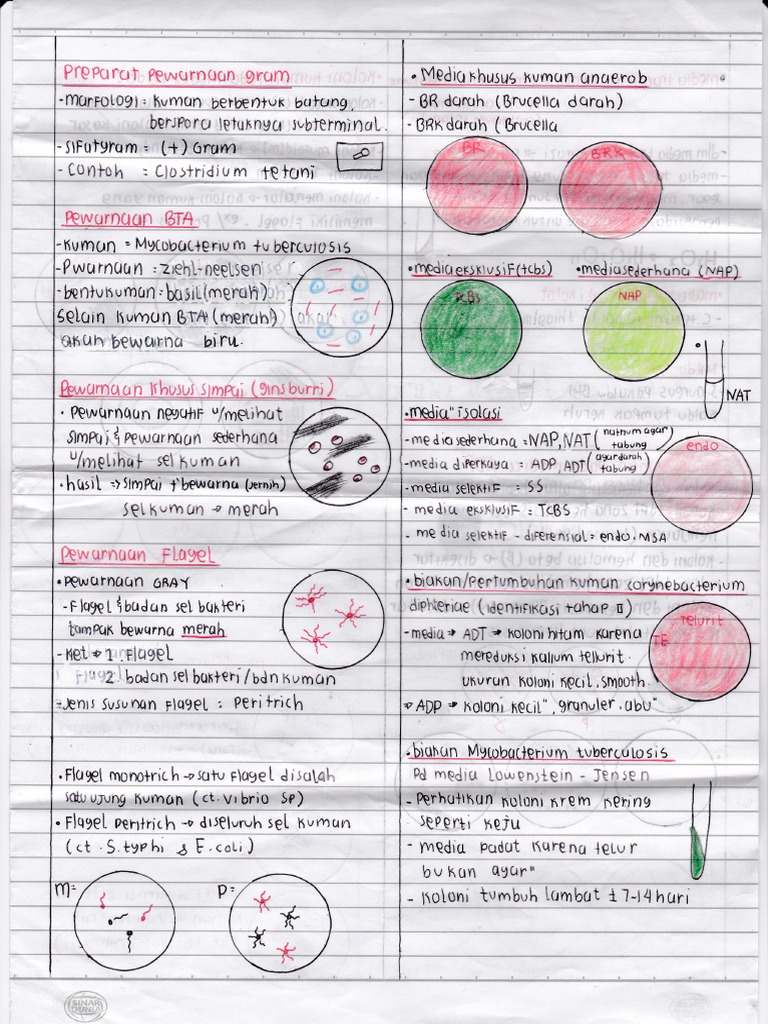 Preparat Pewarnaan gram
- Marfologi = Kuman berbentuk batang,
berspora letaknya subterminal.
- Sifatgram = (+) Gram
- Contoh = Clostridium tetani
Pewarnaan BTA
- Kuman = Mycobacterium tuberculosis
- Pwarnaan = ziehl-neelsen
- bentukuman = basil (merah)
selain kuman BTA (merah)
akan bewarna biru.
Pewarnaan Khusus Simpai (ginsburri)
• Pewarnaan negatif u/melihat
simpai & pewarnaan sederhana
u/melihat sel kuman
• hasil → simpai t'bewarna (jernih)
sel kuman → merah
Pewarnaan Flagel
• Pewarnaan GRAY
- Flagel & badan sel bakteri
tampak bewarna merah
- Ket → 1. Flagel
2. badan sel bakteri/bdn kuman
- Jenis susunan flagel : Peritrich
• Flagel monotrich → satu flagel disalah
satu ujung kuman (ct. Vibrio SP)
• Flagel peritrich → diseluruh sel kuman
(ct. S. typhi & E. coli)
M=
P=
• Media khusus kuman anaerob
- BR darah (Brucella darah)
- BRK darah (Brucella
BR
BRK
• media eksklusif (tcbs)
• media sederhana (NAP)
TCBS
NAP
NAT
• media" isolasi
- media sederhana = NAP, NAT (natrium agar tabung)
- media diperkaya = ADP, ADT (agar darah tabung)
- media selektif = SS
- media eksklusif = TCBS
- media selektif - diferensial = endo, MSA
endo
• biakan/Pertumbuhan kuman corynebacterium
dipkteriae (identifikasi tahap II)
- media → ADT → koloni hitam karena
mereduksi kalium tellurit.
ukuran koloni kecil, smooth.
→ ADP → koloni kecil", granuler, abu"
Telurit
TE
• biakan Mycobacterium tuberculosis
Pd media Lowenstein - Jensen
- Perhatikan koloni krem kering
seperti keju
- media padat karena telur
bukan agar"
- Koloni tumbuh lambat ± 7-14 hari
SINAR
DUNIA